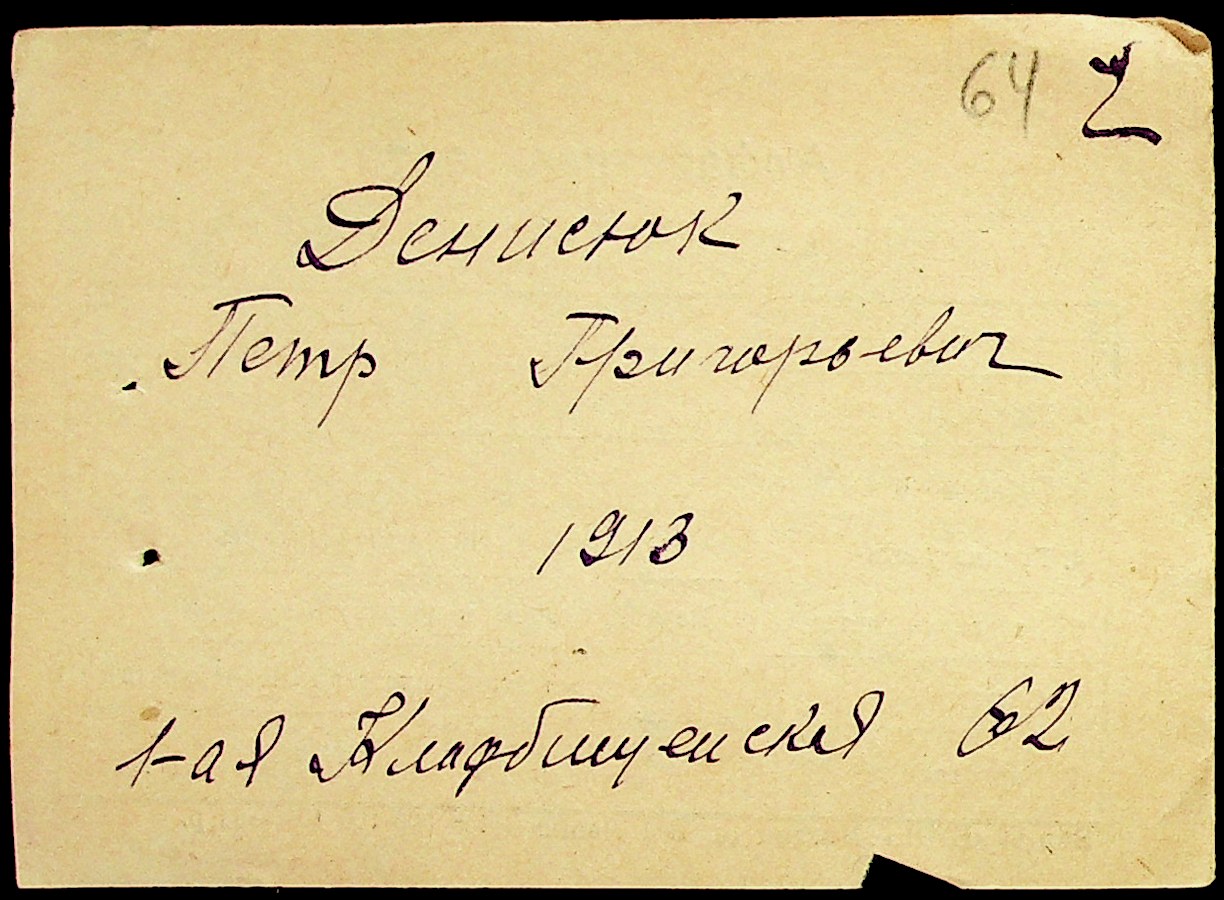 64 2
Денисюк
Петр Григорьевич
1913
1-ая Кладбищенская 62